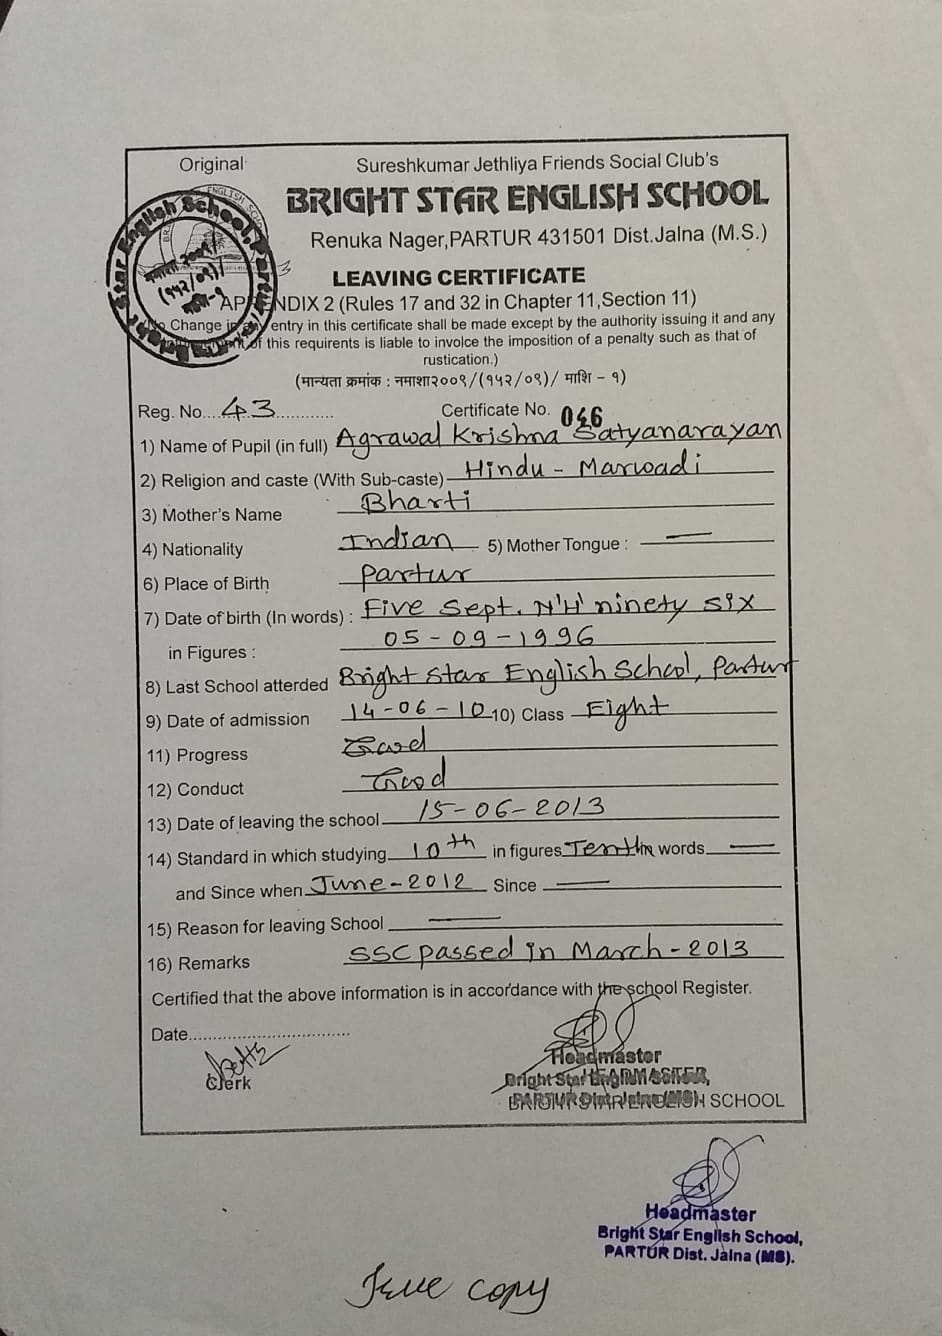 Original
Sureshkumar Jethliya Friends Social Club's
BRIGHT STAR ENGLISH SCHOOL
Renuka Nager,PARTUR 431501 Dist.Jalna (M.S.)
LEAVING CERTIFICATE
APPENDIX 2 (Rules 17 and 32 in Chapter 11,Section 11)
(No Change in any entry in this certificate shall be made except by the authority issuing it and any
of this requirents is liable to involce the imposition of a penalty such as that of
rustication.)
(मान्यता क्रमांक : नमाशा२००९/(१५२/०९)/ माशि - १)
Reg. No....43............ Certificate No. 046
1) Name of Pupil (in full) Agrawal Krishna Satyanarayan
2) Religion and caste (With Sub-caste) Hindu - Marwadi
3) Mother's Name Bharti
4) Nationality Indian 5) Mother Tongue : —
6) Place of Birth Partur
7) Date of birth (In words) : Five Sept. N'H' ninety six
in Figures : 05-09-1996
8) Last School atterded Bright Star English School, Partur
9) Date of admission 14-06-10 10) Class Eight
11) Progress Good
12) Conduct Good
13) Date of leaving the school 15-06-2013
14) Standard in which studying 10th in figures Tenth in words —
and Since when June-2012 Since —
15) Reason for leaving School —
16) Remarks SSC passed in March-2013
Certified that the above information is in accordance with the school Register.
Date..................................
Clerk
Headmaster
Bright Star English School,
PARTUR Dist. SCHOOL
Headmaster
Bright Star English School,
PARTUR Dist. Jalna (MS).
True copy